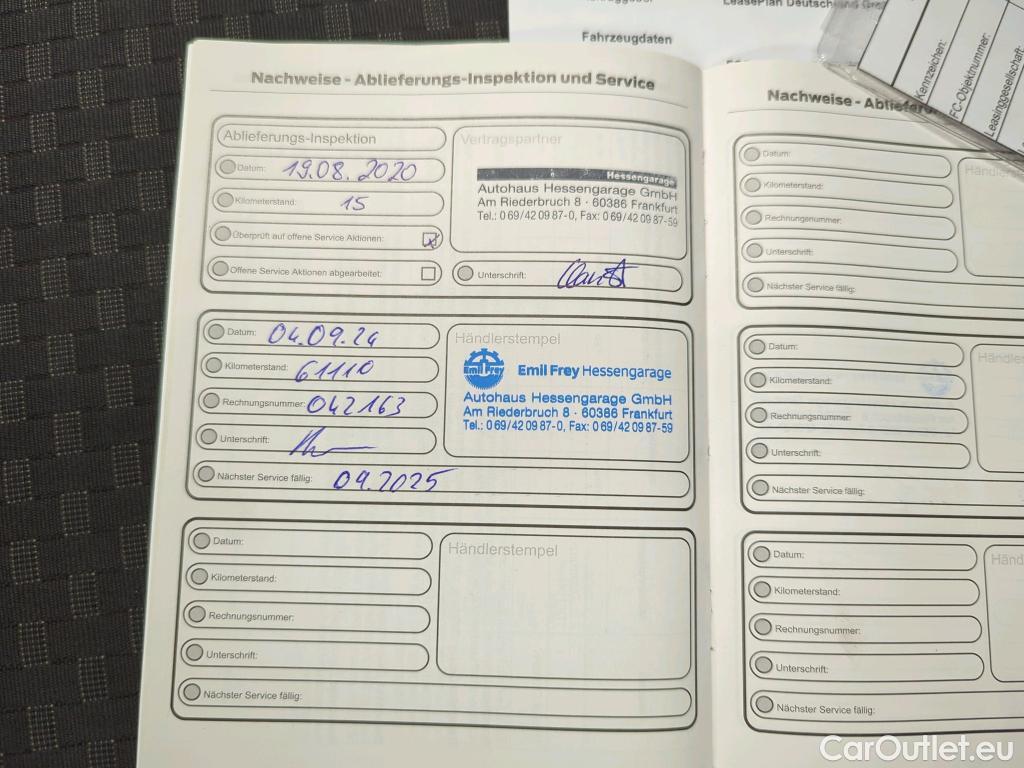 LeasePlan Deutschland
Fahrzeugdaten
Kennzeichen:
FC-Objektnummer:
Leasinggesellschaft:
Nachweise - Ablieferungs-Inspektion und Service
Ablieferungs-Inspektion
Datum: 19.08.2020
Kilometerstand: 15
Überprüft auf offene Service Aktionen: x
Offene Service Aktionen abgearbeitet:
Vertragspartner
Hessengarage
Autohaus Hessengarage GmbH
Am Riederbruch 8 · 60386 Frankfurt
Tel.: 0 69/42 09 87-0, Fax: 0 69/42 09 87-59
Unterschrift:
Datum: 04.09.24
Kilometerstand: 61110
Rechnungsnummer: 042163
Unterschrift:
Nächster Service fällig: 09.2025
Händlerstempel
Emil Frey
Emil Frey Hessengarage
Autohaus Hessengarage GmbH
Am Riederbruch 8 · 60386 Frankfurt
Tel.: 0 69/42 09 87-0, Fax: 0 69/42 09 87-59
Datum:
Kilometerstand:
Rechnungsnummer:
Unterschrift:
Nächster Service fällig:
Händlerstempel
Nachweise - Abliefer
Datum:
Kilometerstand:
Rechnungsnummer:
Unterschrift:
Nächster Service fällig:
Händlers
Datum:
Kilometerstand:
Rechnungsnummer:
Unterschrift:
Nächster Service fällig:
Händles
Datum:
Kilometerstand:
Rechnungsnummer:
Unterschrift:
Nächster Service fällig:
Händ
CarOutlet.eu